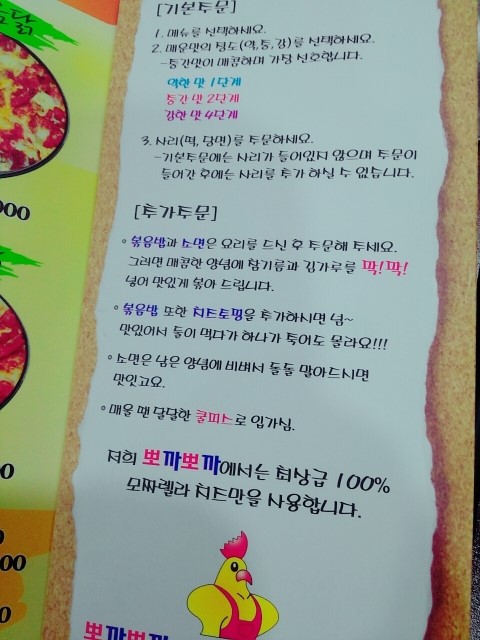 닭
[기본주문]
1. 메뉴를 선택하세요.
2. 매운맛의 정도(약,중,강)를 선택하세요.
-중간맛이 매콤하며 가장 선호합니다.
약한 맛 1단계
중간 맛 2단계
강한 맛 4단계
3. 사리(떡, 당면)를 주문하세요.
-기본주문에는 사리가 들어있지 않으며 주문이
들어간 후에는 사리를 추가 하실 수 없습니다.
000
[추가주문]
◦볶음밥과 소면은 요리를 드신 후 주문해 주세요.
그러면 매콤한 양념에 참기름과 김가루를 팍!팍!
넣어 맛있게 볶아 드립니다.
◦볶음밥 또한 치즈토핑을 추가하시면 넘~
맛있어서 둘이 먹다가 하나가 죽어도 몰라요!!!
◦소면은 남은 양념에 비벼서 돌돌 말아드시면
맛있고요.
◦매울 땐 달달한 쿨피스로 입가심.
저희 뽀까뽀까에서는 최상급 100%
모짜렐라 치즈만을 사용합니다.
0
00
0
뽀까뽀까